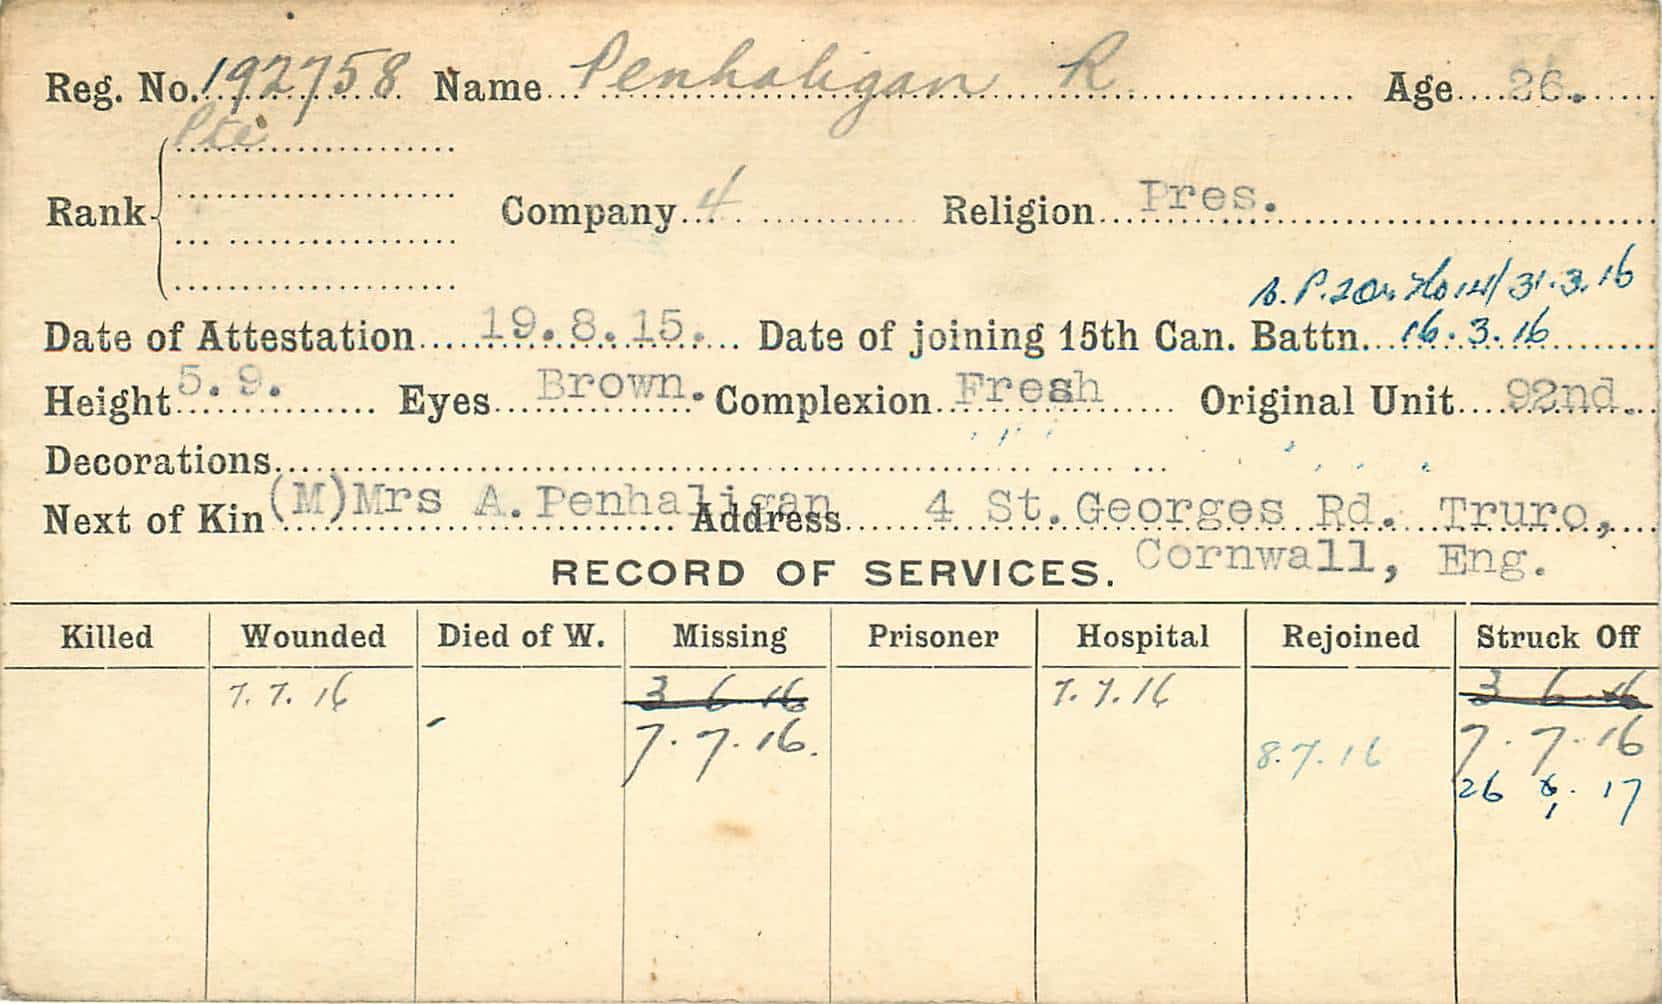 Reg. No. 192758 Name Penhaligan R Age 26.
Pte
Rank Company 4 Religion Pres.
31.3.16
Date of Attestation 19.8.15. Date of joining 15th Can. Battn. 16.3.16
Height 5.9. Eyes Brown. Complexion Fresh Original Unit 92nd.
Decorations
Next of Kin (M) Mrs A. Penhaligan Address 4 St. Georges Rd. Truro,
Cornwall, Eng.
RECORD OF SERVICES.
Killed Wounded Died of W. Missing Prisoner Hospital Rejoined Struck Off
7.7.16 3 6 16 7.7.16 3 6 16
7.7.16. 8.7.16 7.7.16
26 6. 17